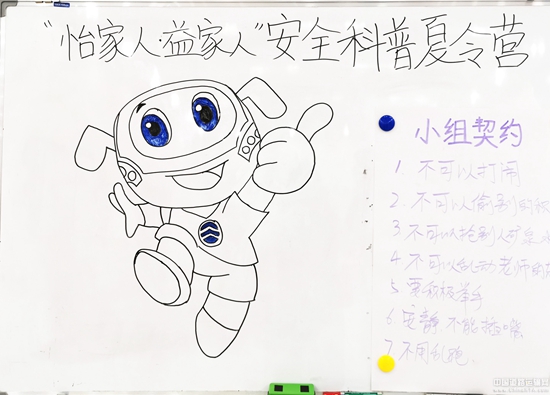 “怡家人·益家人”安全科普夏令营
小组契约
1. 不可以打闹
2. 不可以偷别的
3 不可以抢别人
4 不可以乱动老师的
5 要积极举手
6 安静 不能插嘴
7. 不用乱跑.